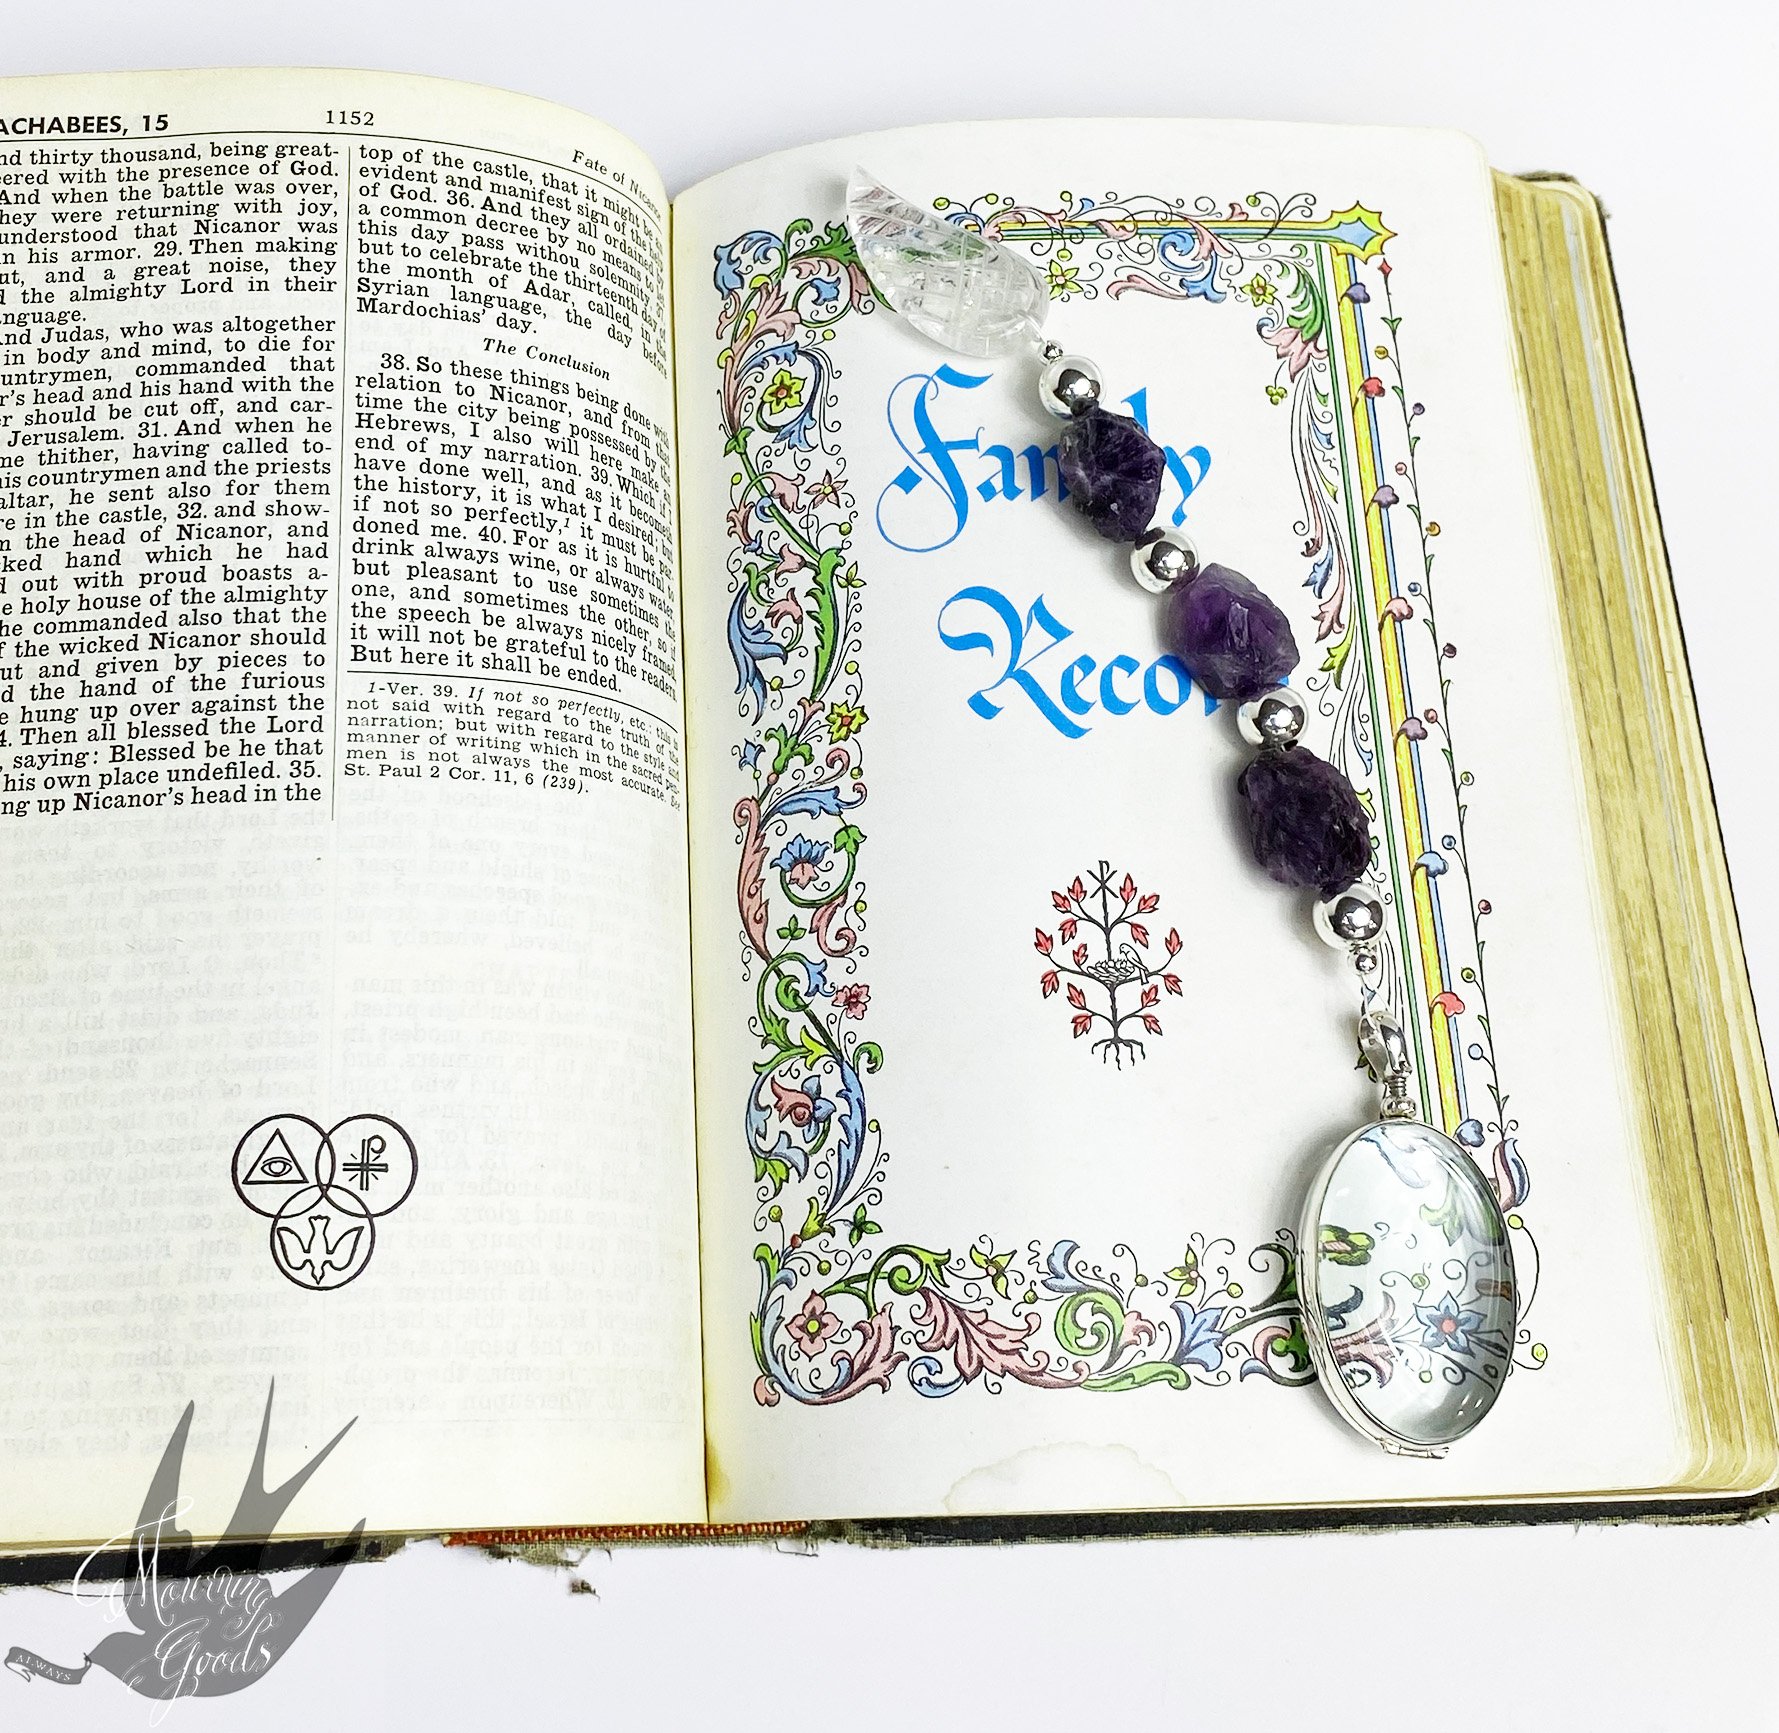 ACHABEES, 15
1152
Fate of Nicanor
nd thirty thousand, being great-
eered with the presence of God.
And when the battle was over,
hey were returning with joy,
understood that Nicanor was
in his armor. 29. Then making
ut, and a great noise, they
d the almighty Lord in their
anguage.
And Judas, who was altogether
in body and mind, to die for
untrymen, commanded that
r's head and his hand with the
er should be cut off, and car-
Jerusalem. 31. And when he
me thither, having called to-
his countrymen and the priests
altar, he sent also for them
re in the castle, 32. and show-
m the head of Nicanor, and
cked hand which he had
d out with proud boasts a-
e holy house of the almighty
he commanded also that the
f the wicked Nicanor should
ut and given by pieces to
d the hand of the furious
e hung up over against the
4. Then all blessed the Lord
, saying: Blessed be he that
his own place undefiled. 35.
ng up Nicanor's head in the
top of the castle, that it might be an
evident and manifest sign of the help
of God. 36. And they all ordained by
a common decree by no means to let
this day pass without solemnity, 37.
but to celebrate the thirteenth day of
the month of Adar, called, in the
Syrian language, the day before
Mardochias' day.
The Conclusion
38. So these things being done with
relation to Nicanor, and from that
time the city being possessed by the
Hebrews, I also will here make an
end of my narration. 39. Which if I
have done well, and as it becometh
the history, it is what I desired; but
if not so perfectly,¹ it must be par-
doned me. 40. For as it is hurtful to
drink always wine, or always water,
but pleasant to use sometimes the
one, and sometimes the other, so if
the speech be always nicely framed,
it will not be grateful to the readers.
But here it shall be ended.
1-Ver. 39. If not so perfectly, etc.: this is
not said with regard to the truth of the
narration; but with regard to the style and
manner of writing which in the sacred pen-
men is not always the most accurate. See
St. Paul 2 Cor. 11, 6 (239).
Family
Record
Mourning
Goods
ALWAYS